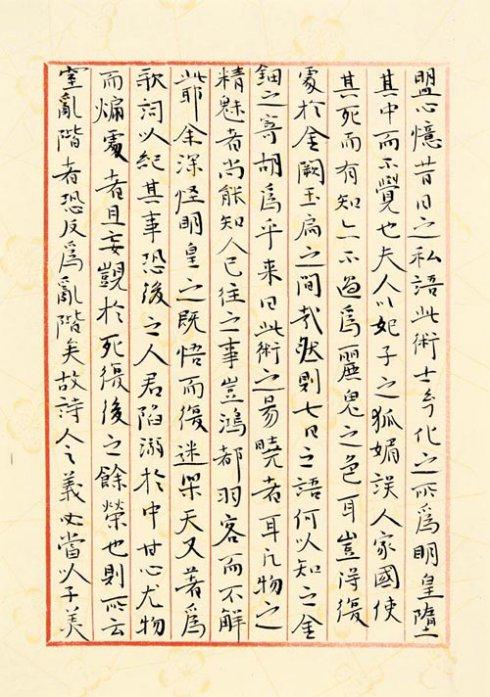 盟心憶昔日之私語此術士幻化之所爲明皇墮
其中而不覺也夫人以妃子之狐媚誤人家國使
其死而有知亦不過爲麗鬼之色耳豈得復
處於金闕玉扃之間哉然則七日之語何以知之金
鈿之寄胡爲乎来曰此術之易曉者耳凡物之
精魅者尚能知人已往之事豈鴻都羽客而不解
此耶余深怪明皇之既悟而復迷樂天又著爲
歌詞以紀其事恐後之人君陷溺於中甘心尤物
而煽處者且妄覬於死後之餘榮也則所云
窒亂階者恐反爲亂階矣故詩人之義必當以子美